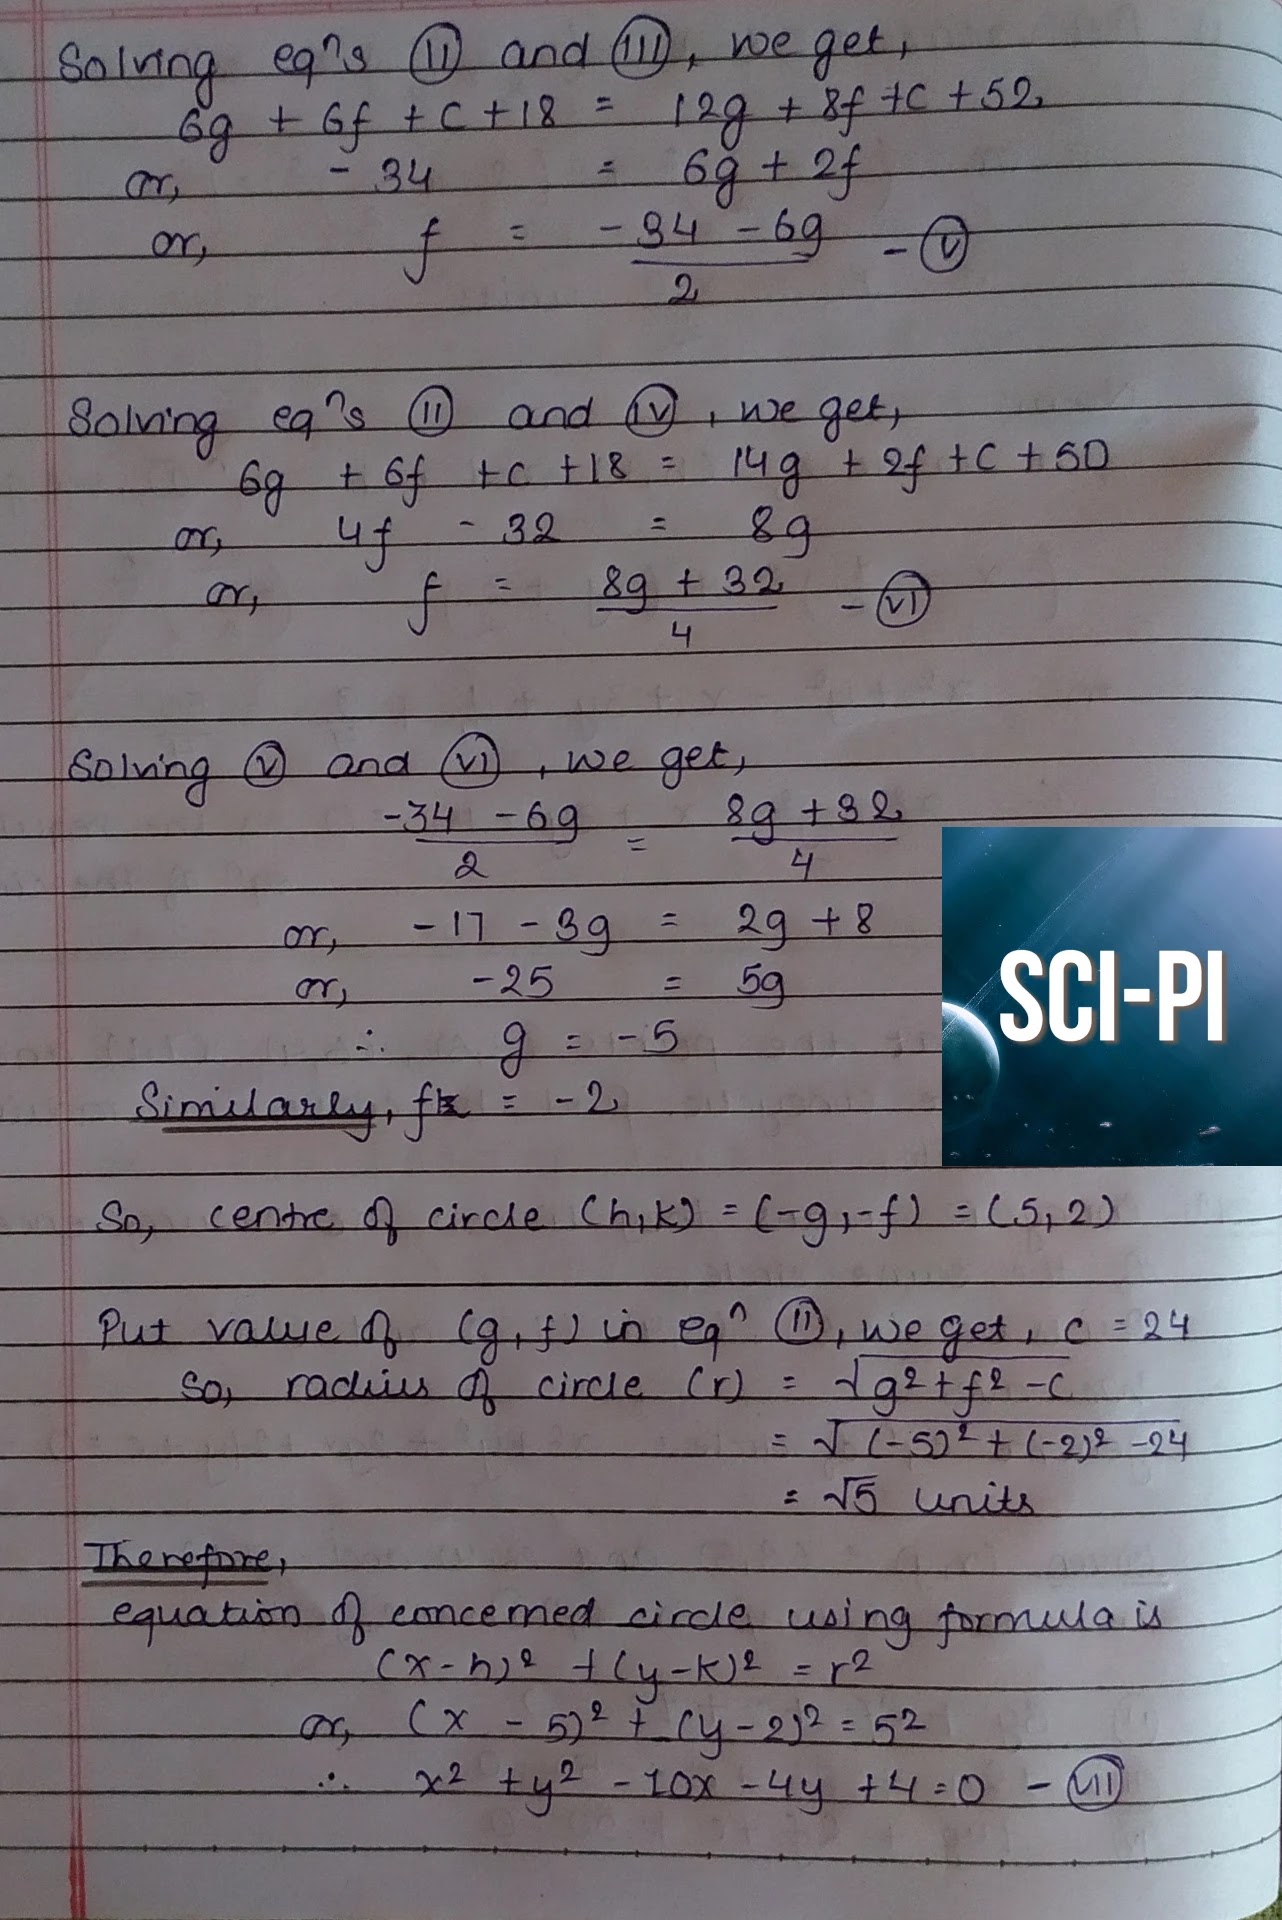 Solving eqⁿs (II) and (III), we get,
6g + 6f + c + 18 = 12g + 8f + c + 52
or, - 34 = 6g + 2f
or, f = -34 - 6g / 2 - (V)
Solving eqⁿs (II) and (IV), we get,
6g + 6f + c + 18 = 14g + 2f + c + 50
or, 4f - 32 = 8g
or, f = 8g + 32 / 4 - (VI)
Solving (V) and (VI), we get,
-34 - 6g / 2 = 8g + 32 / 4
or, -17 - 3g = 2g + 8
or, -25 = 5g
∴ g = -5
Similarly, f = -2
SCI-PI
So, centre of circle (h,k) = (-g,-f) = (5,2)
Put value of (g,f) in eqⁿ (II), we get, c = 24
So, radius of circle (r) = √g² + f² - c
= √(-5)² + (-2)² - 24
= √5 units
Therefore,
equation of concerned circle using formula is
(x-h)² + (y-k)² = r²
or, (x - 5)² + (y - 2)² = 5²
∴ x² + y² - 10x - 4y + 4 = 0 - (VII)